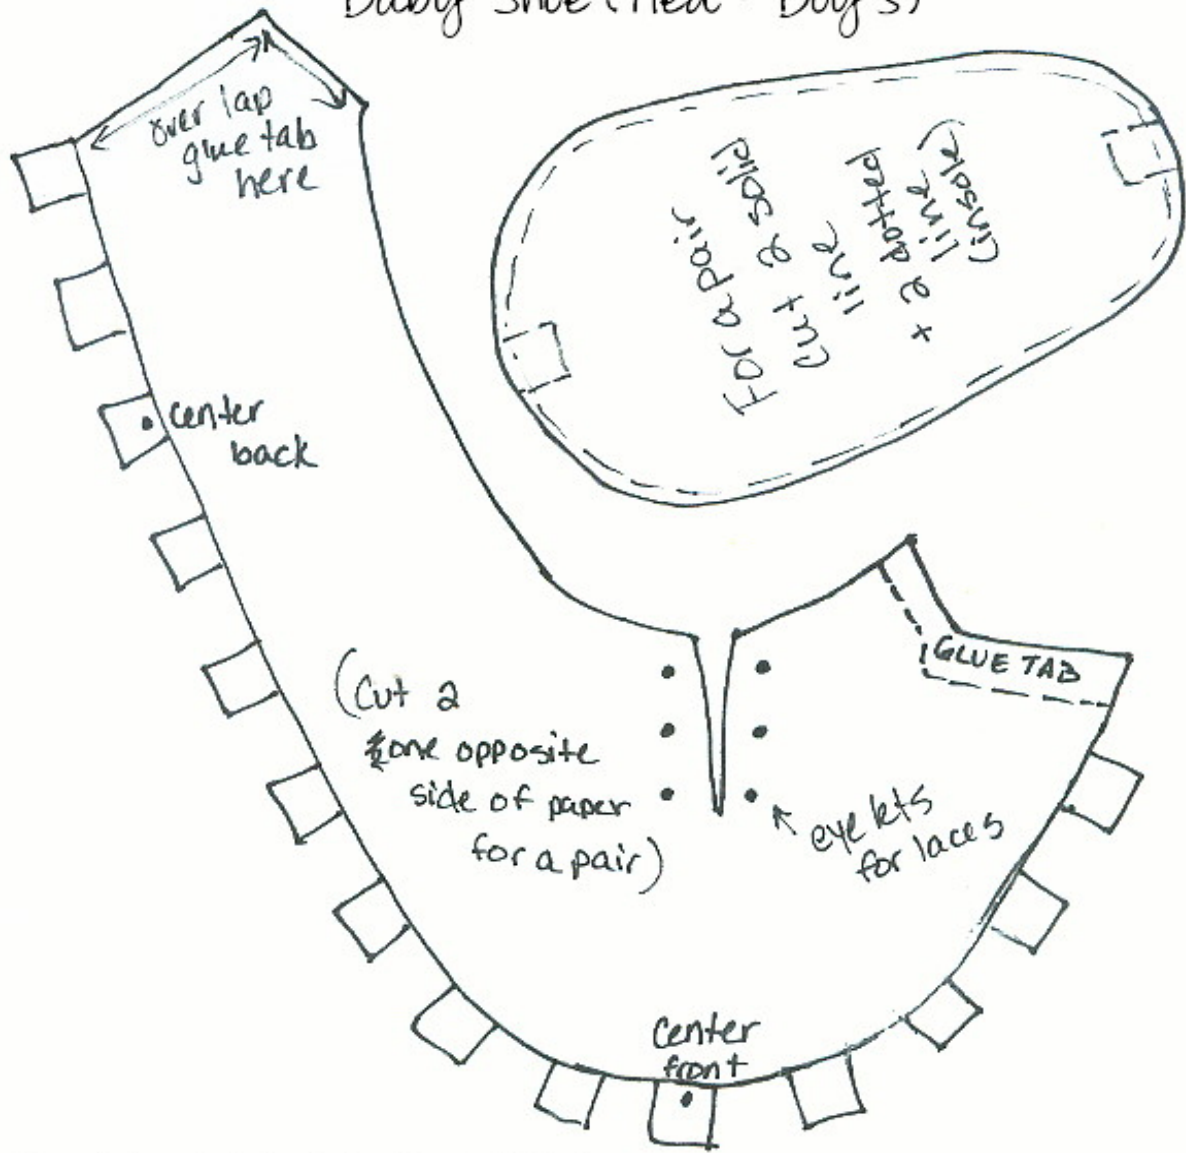 Baby Shoe (Tied - Boys)
over lap
glue tab
here
For a pair
cut 2 solid
line
+ 2 dotted
line
(insole)
center
back
GLUE TAB
(Cut 2
one opposite
side of paper
for a pair)
eyelets
for laces
center
front